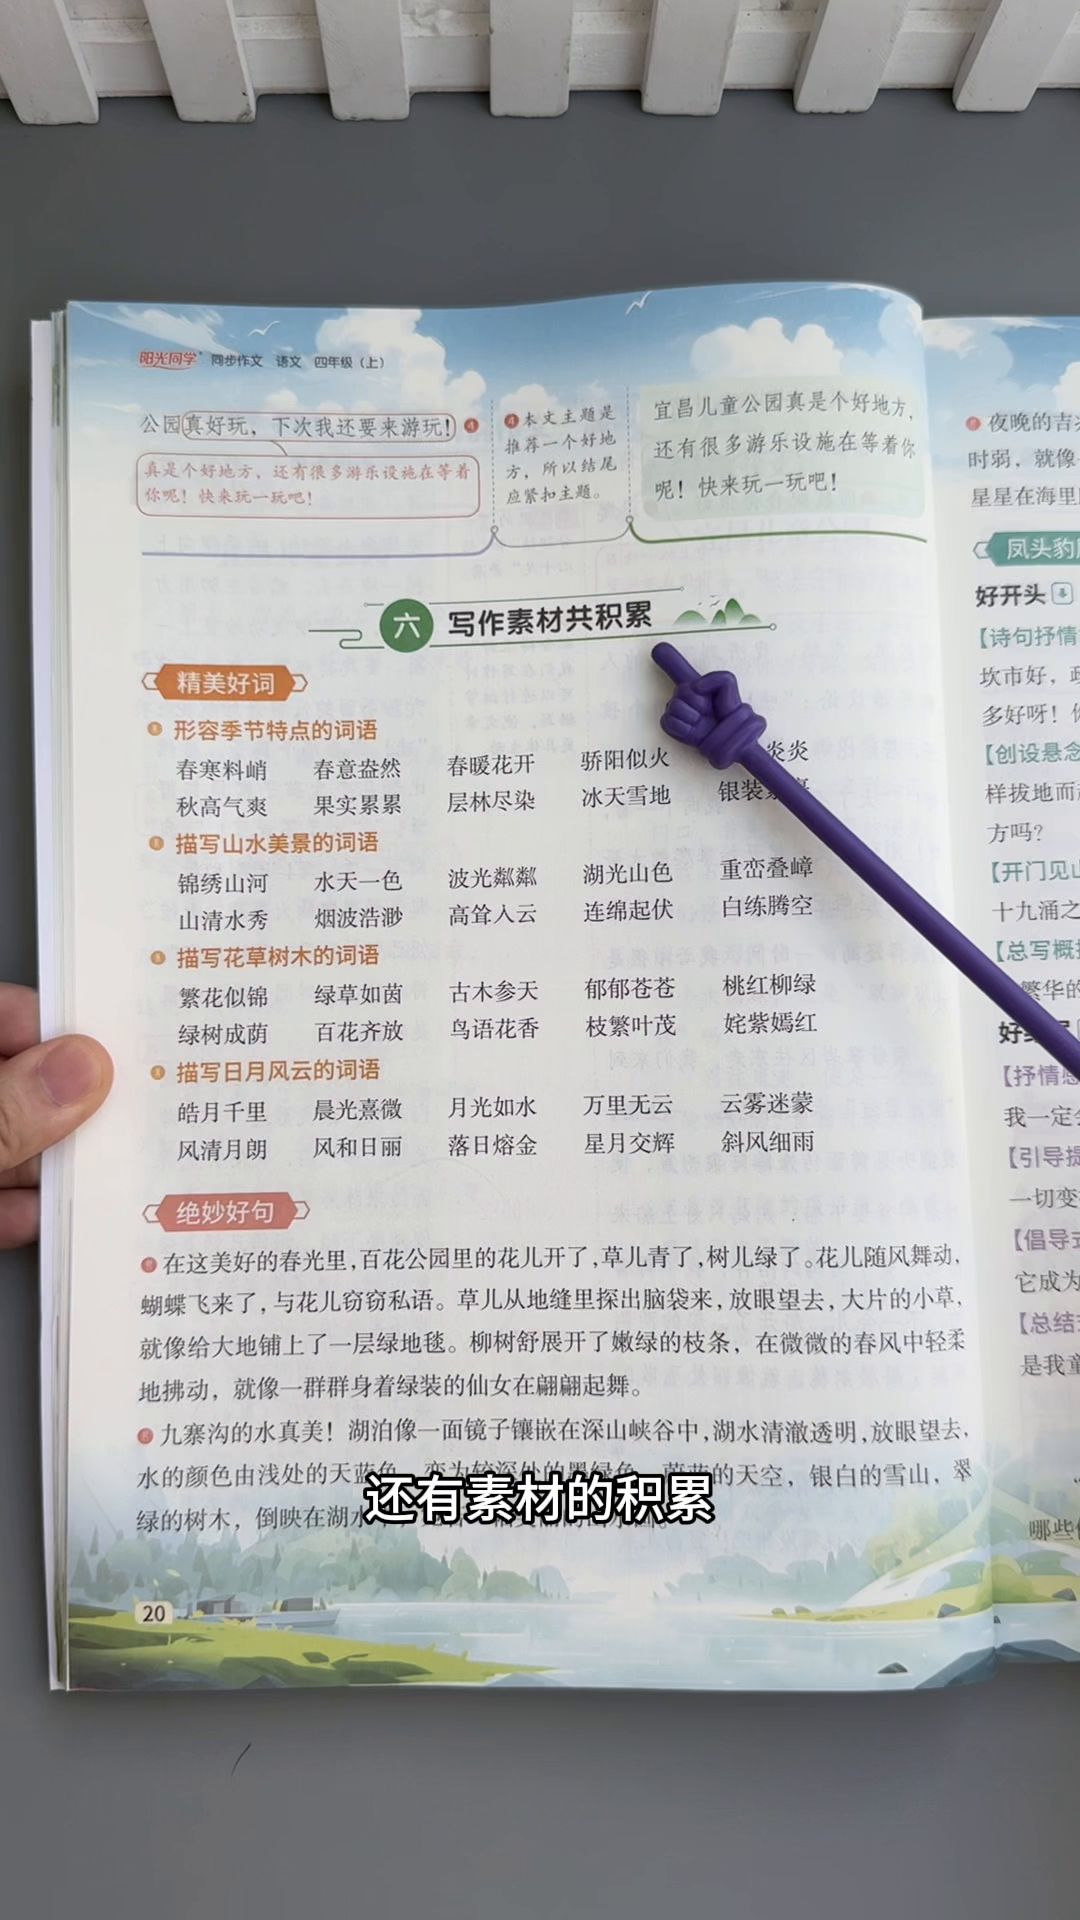 阳光同学 同步作文 语文 四年级（上）
公园真好玩，下次我还要来游玩！
真是个好地方，还有很多游乐设施在等着
你呢！快来玩一玩吧！
4 本文主题是
推荐一个好地
方，所以结尾
应紧扣主题。
宜昌儿童公园真是个好地方，
还有很多游乐设施在等着你
呢！快来玩一玩吧！
六 写作素材共积累
精美好词
形容季节特点的词语
春寒料峭 春意盎然 春暖花开 骄阳似火 炎炎
秋高气爽 果实累累 层林尽染 冰天雪地 银装
描写山水美景的词语
锦绣山河 水天一色 波光粼粼 湖光山色 重峦叠嶂
山清水秀 烟波浩渺 高耸入云 连绵起伏 白练腾空
描写花草树木的词语
繁花似锦 绿草如茵 古木参天 郁郁苍苍 桃红柳绿
绿树成荫 百花齐放 鸟语花香 枝繁叶茂 姹紫嫣红
描写日月风云的词语
皓月千里 晨光熹微 月光如水 万里无云 云雾迷蒙
风清月朗 风和日丽 落日熔金 星月交辉 斜风细雨
绝妙好句
在这美好的春光里，百花公园里的花儿开了，草儿青了，树儿绿了。花儿随风舞动，
蝴蝶飞来了，与花儿窃窃私语。草儿从地缝里探出脑袋来，放眼望去，大片的小草，
就像给大地铺上了一层绿地毯。柳树舒展开了嫩绿的枝条，在微微的春风中轻柔
地拂动，就像一群群身着绿装的仙女在翩翩起舞。
九寨沟的水真美！湖泊像一面镜子镶嵌在深山峡谷中，湖水清澈透明，放眼望去，
水的颜色由浅处的天蓝色，变为较深处的墨绿色。蔚蓝的天空，银白的雪山，翠
绿的树木，倒映在湖水
还有素材的积累
20
夜晚的吉
时弱，就像
星星在海里
凤头豹
好开头
【诗句抒情
坎市好，
多好呀！
【创设悬念
样拔地而
方吗？
【开门见山
十九涌之
【总写概
繁华的
好
【抒情
我一定
【引导
一切变
【倡导
它成为
【总结
是我
哪些